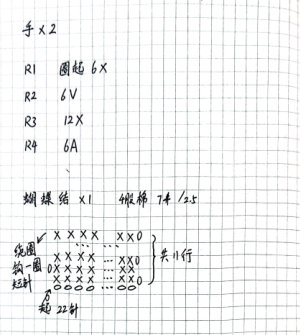 手×2
R1 圈起 6X
R2 6V
R3 12X
R4 6A
蝴蝶结×1 4股棉 7# /2.5
X X X X X X 0
... ...
X X X X ... X X 0
0 X X X X ... X X
X X X X ... X X 0
0 0 0 0 ... 0 0
绕圈
钩一圈
短针
共11行
起 22针